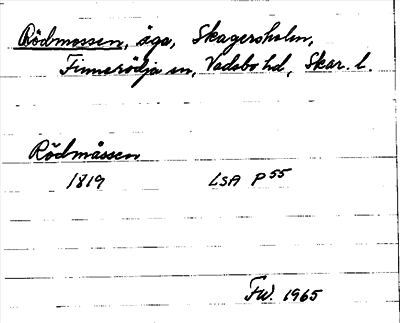 Rödmossen, äga, Skagersholm,
Finnerödja sn, Vadsbo hd, Skar. l.
Rödmåssen
1819 LSA P 55
FW. 1965